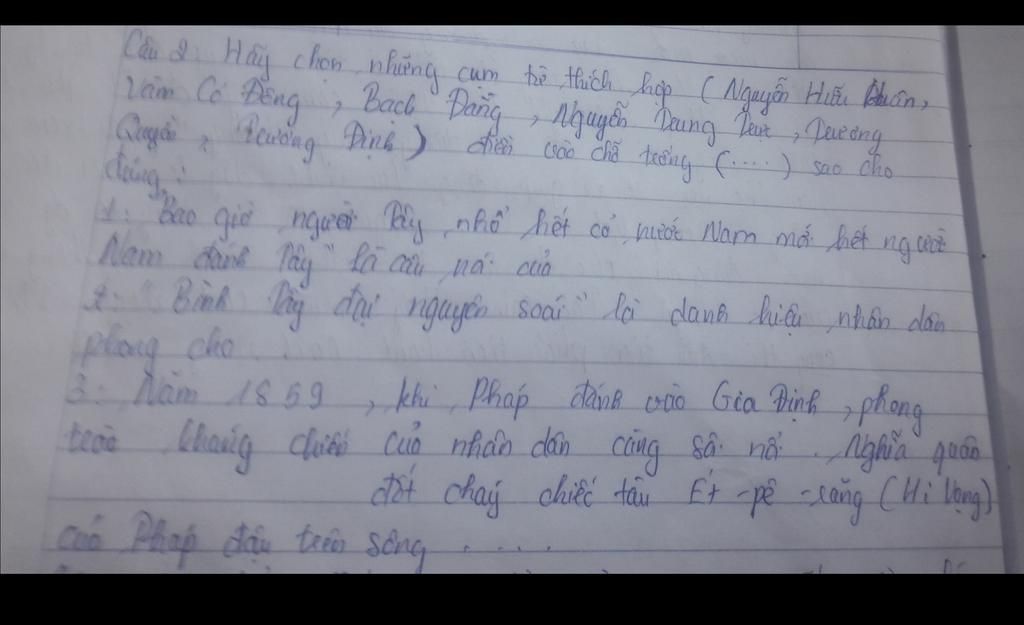 Câu 2: Hãy chọn những cụm từ thích hợp (Nguyễn Hữu Huân,
Vàm Cỏ Đông, Bạch Đằng, Nguyễn Trung Trực, Trương
Quyền, Trương Định) điền vào chỗ trống (....) sao cho
đúng:
1: "Bao giờ người Tây nhổ hết cỏ nước Nam mới hết người
Nam đánh Tây" là câu nói của
2: "Bình Tây đại nguyên soái" là danh hiệu nhân dân
phong cho
3: Năm 1859, khi Pháp đánh vào Gia Định, phong
trào kháng chiến của nhân dân càng sôi nổi. Nghĩa quân
đốt cháy chiếc tàu Ét-pê-răng (Hi Vọng)
của Pháp đậu trên sông ....